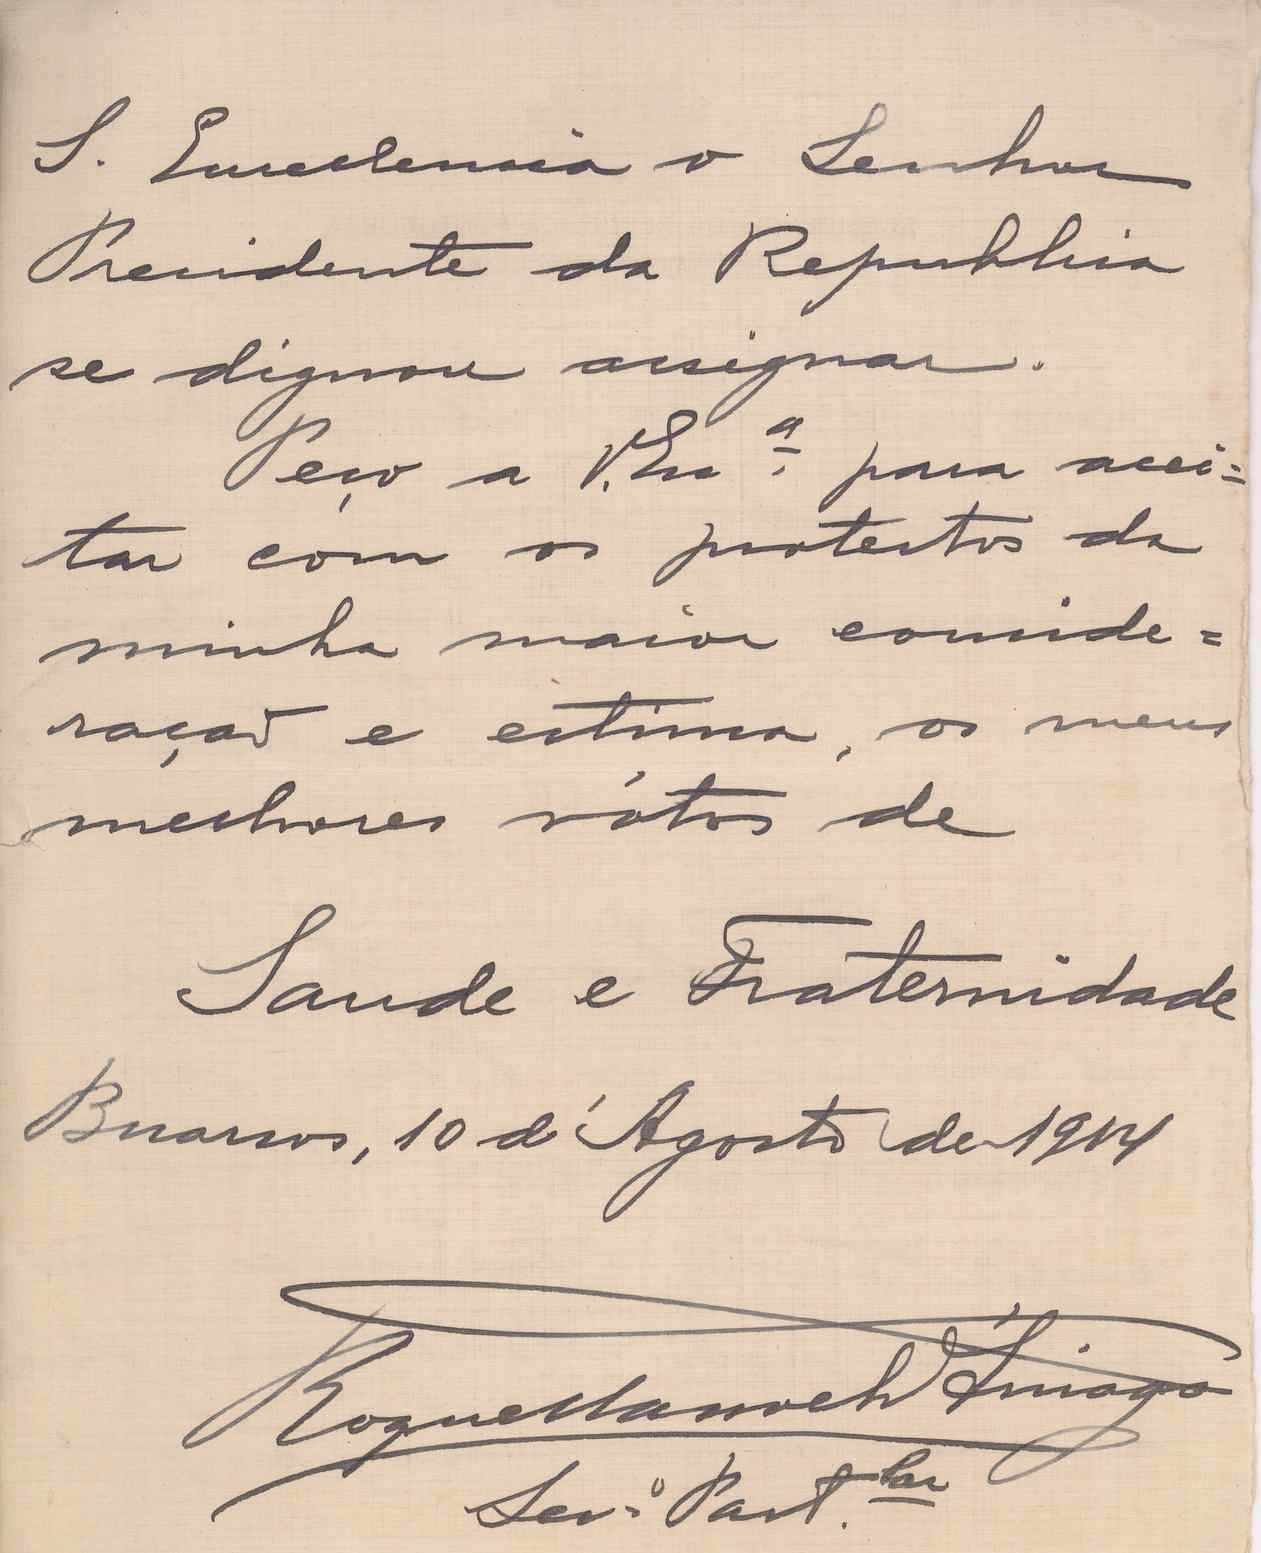 S. Excellencia o Senhor
Presidente da Republica
se dignou assignar.
Peço a V. Exª. para acei=
tar com os protestos da
minha maior conside=
raçaõ e estima, os meus
melhores vótos de
Saude e Fraternidade
Buarcos, 10 d'Agosto de 1914
Roque Manoel d'Arriaga
Secº. Part.lar